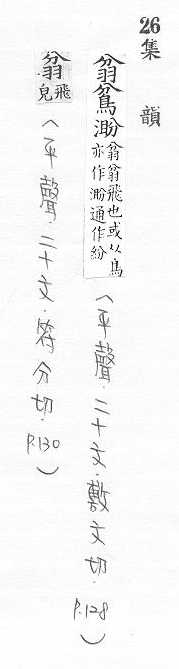 26
集韻
翂鳻
翂翂飛也或从鳥
亦作通作紛
(平聲.二十文.敷文切.P.128)
翂
飛
皃
(平聲.二十文.符分切.P.130)